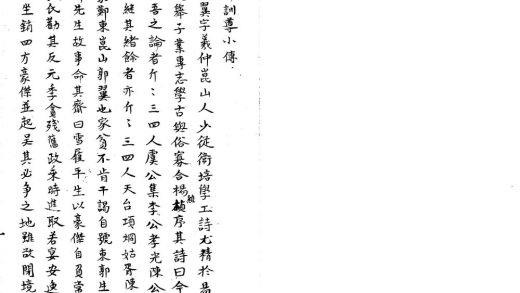 訓導小傳
翼字義仲崑山人少從衛培學工詩尤精於易
舉子業專志學古與俗寡合楊維楨序其詩曰今
吾之論者斤〻三四人虞公集李公孝光陳公
繼其緒餘者亦斤〻三四人天台項炯姑胥陳
鄞東崑山郭翼也家貧不肯干謁自號東郭生
先生故事命其齋曰雪履平生以豪傑自負常
氏勸其反元季貪殘舊政乘時進取若宴安逸
坐銷四方豪傑並起吴其必爭之地雖欲閉境